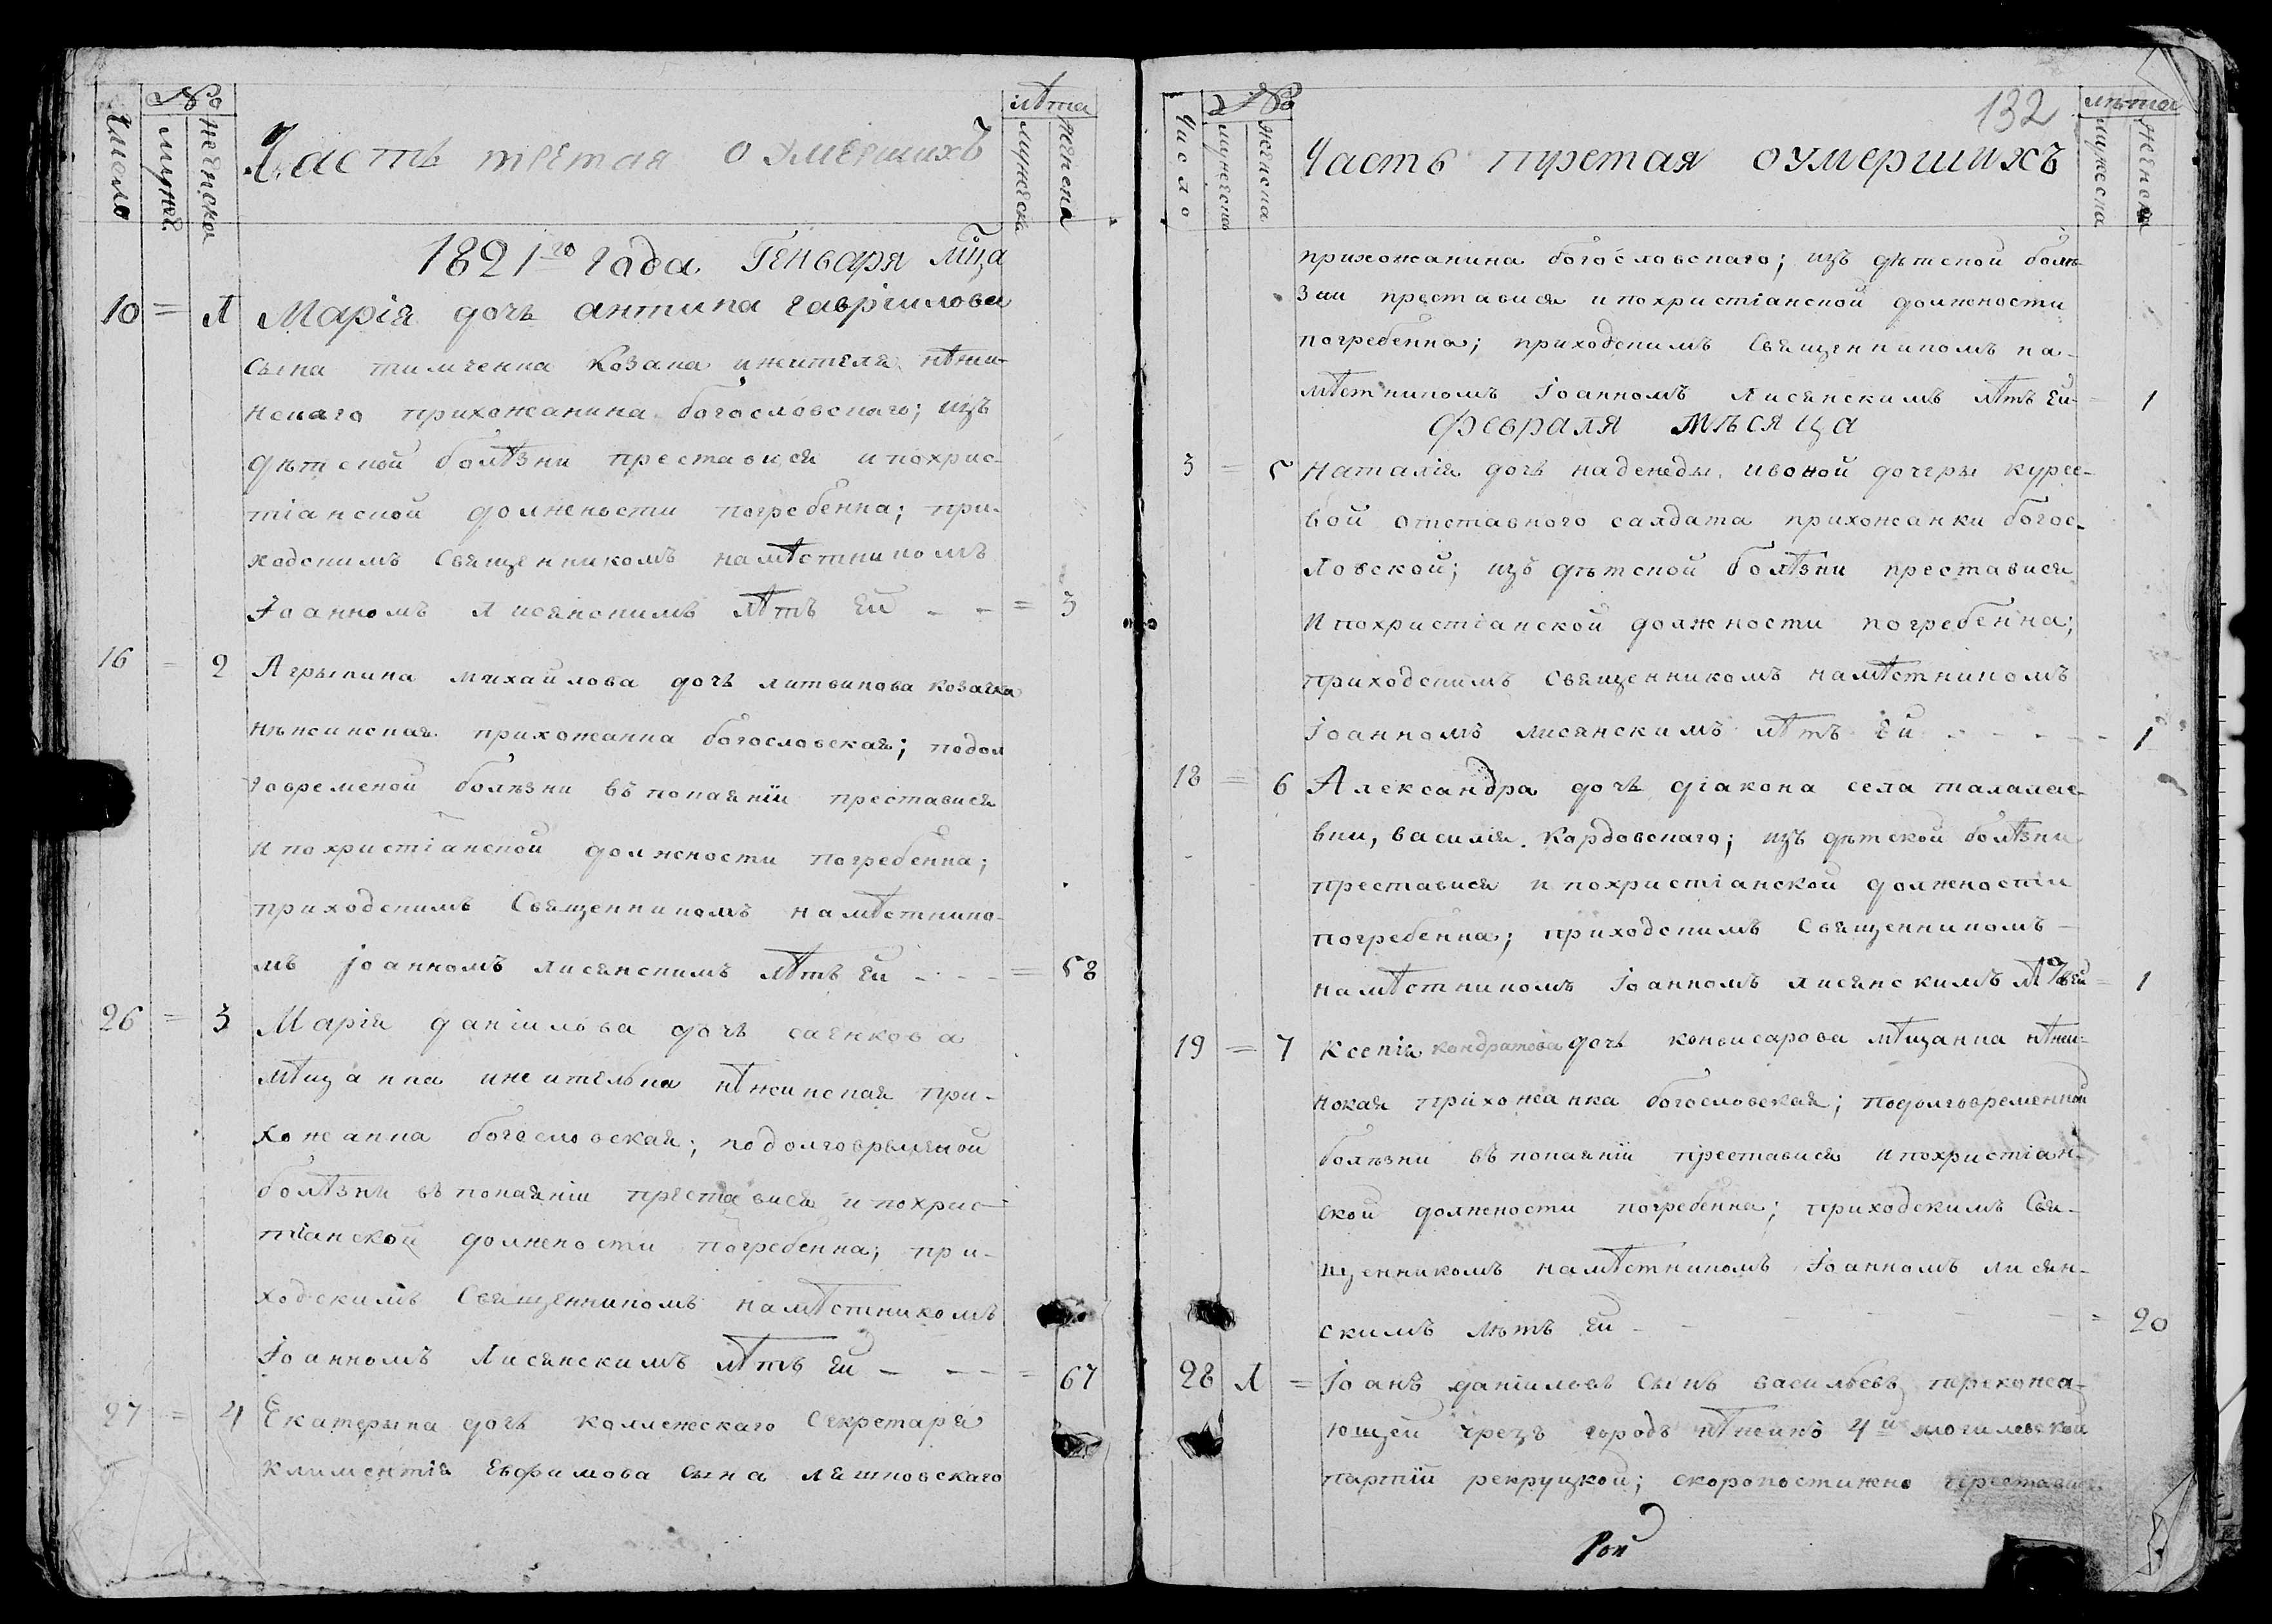 Число
№
мужеска
женска
Часть третая о умершихъ
лѣта
мужеска
женска
1821го Года Генваря мца
10 = 1 Марія дочь антипа гавріилова
сына тимченка козака и жителя нѣжи-
нскаго прихожанина богословскаго; изъ
дѣтской болѣзни преставися и похрис-
тіанской должности погребенна; при-
ходскимъ Священникомъ намѣстникомъ
Іоанномъ Лисянскимъ лѣтъ ей - - = 3
16 = 2 Агрыпина михайлова дочь литвинова козачка
нѣжинская прихожанка богословская; подол
говременой болѣзни въ покаяніи преставися
и похристіанской должности погребенна;
приходскимъ Священникомъ намѣстнико-
мъ Іоанномъ лисянскимъ лѣтъ ей - - - = 58
26 = 3 Марія даніилова дочь саенкова
мѣщанка и жителька нѣжинская при-
хожанка богословская; подолговременой
болѣзни въ покаяніи преставися и похрис-
тіанской должности погребенна; при-
ходскимъ Священникомъ намѣстникомъ
Іоанномъ Лисянскимъ лѣтъ ей - - - = 67
27 = 4 Екатерына дочь колежскаго Секретаря
климентія Евфимова сына ляшковскаго
132
Число
№
мужеска
женска
Часть третая оумершихъ
лѣта
мужеска
женска
прихожанина богословскаго; изъ дѣтской болѣ-
зни преставися и похристіанской должности
погребенна; приходскимъ Священникомъ на-
мѣстникомъ Іоанномъ Лисянскимъ лѣтъ ей - 1
Февраля мѣсяца
3 = 5 Наталія дочь надежды ивоной дочеры курсе-
вой отставного салдата прихожанки богос-
ловской; изъ дѣтской болѣзни преставися
и похристіанской должности погребенна;
приходскимъ Священникомъ намѣстникомъ
Іоанномъ лисянскимъ лѣтъ ей - - - - 1
18 = 6 Александра дочь діакона села талалае-
вки, василія Кордовскаго; изъ дѣтской болѣзни
преставися и похристіанской должности
погребенна; приходскимъ Священникомъ -
намѣстникомъ Іоанномъ лисянскимъ лѣтъ ей = 1
19 = 7 Ксенія кондратова дочь конвисарова мѣщанка нѣжи-
нская прихожанка богословская; подолговременной
болѣзни въ покаяніи преставися и похристіан-
ской должности погребенна; приходскимъ Свя-
щенникомъ намѣстникомъ Іоанномъ лисян-
скимъ лѣтъ ей - - - = 20
28 1 = Іоанъ даніиловъ Сынъ васильевъ, перехожа-
ющей чрезъ городъ нѣжинъ 4й могилевской
партіи рекруцкой; скоропостижно преставися